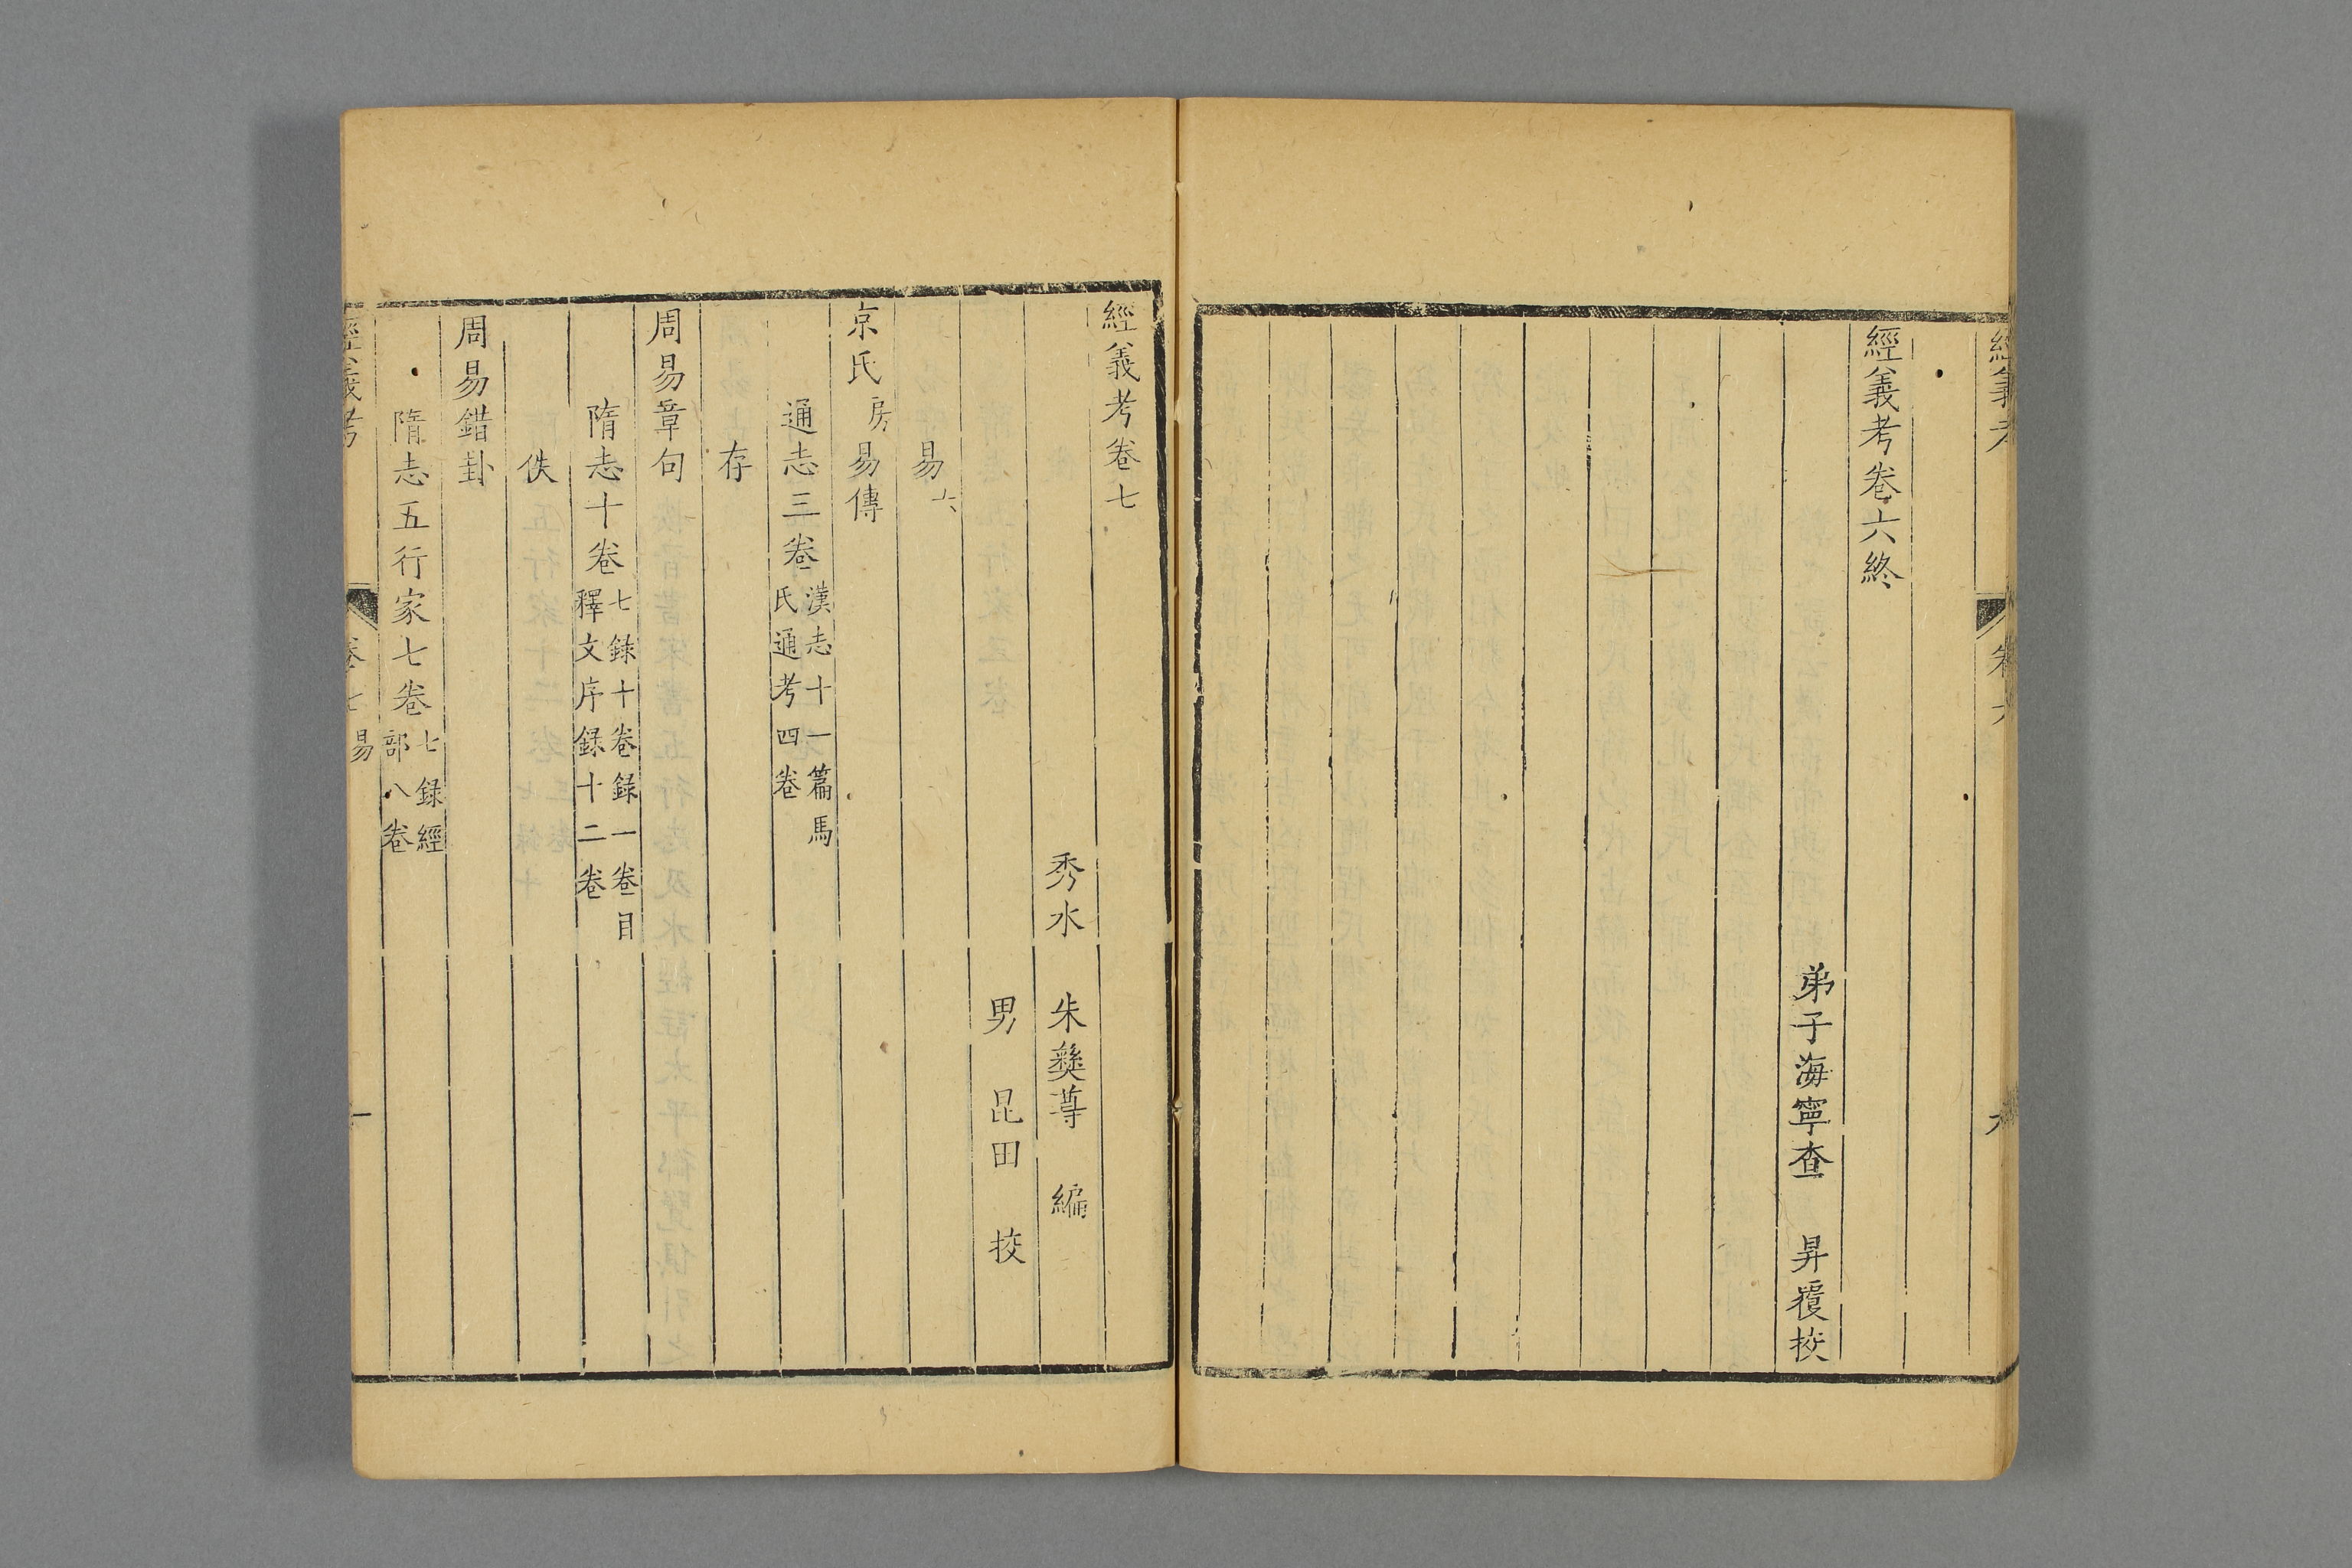 經義考卷六終
弟子海寧查　昇覆挍
經義考卷七
秀水　朱彝尊　編
男　昆田　挍
易六
京氏房易傳
通志三卷漢志十一篇馬
氏通考四卷
存
周易章句
隋志十卷七錄十卷錄一卷目
釋文序録十二卷
佚
周易錯卦
隋志五行家七卷七録經
部八卷
經義考　卷七　易　一